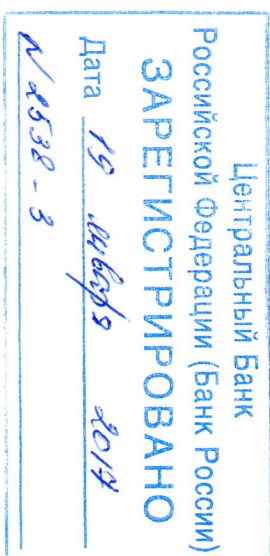 Центральный Банк
Российской Федерации (Банк России)
ЗАРЕГИСТРИРОВАНО
Дата 19 января 2017
N 2538 - 3